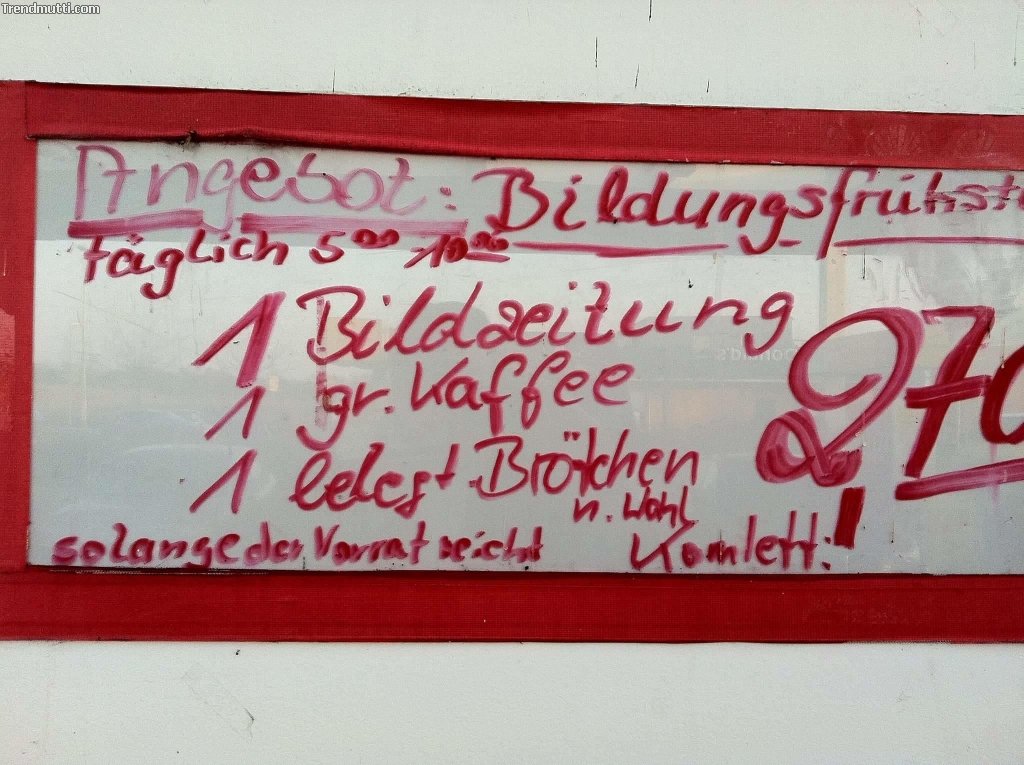 Trendmutti.com
Angebot: Bildungsfrühst
täglich 5⁰⁰-10⁰⁰
1 Bildzeitung
1 gr. Kaffee
1 belegt. Brötchen
n. Wahl
270
solange der Vorrat reicht Komlett:!